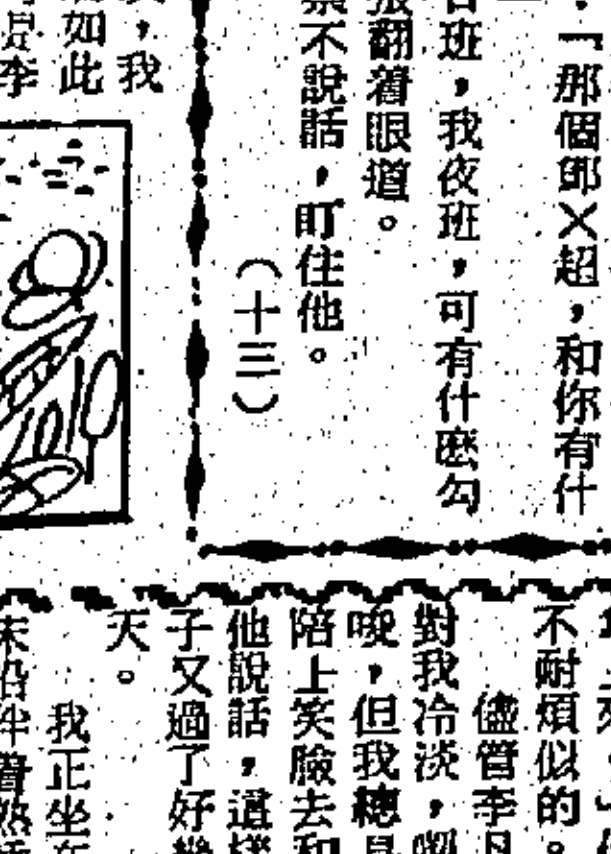 「那個鄔×超，和你有什
班，我夜班，可有什麽勾
翻着眼道。
不說話，盯住他。
（十三）
，我
如此
李
不耐煩似的。
儘管李
對我冷淡，
唆，但我總是
陪上笑臉去和
他說話，這樣
子又過了好幾
天。
我正坐在